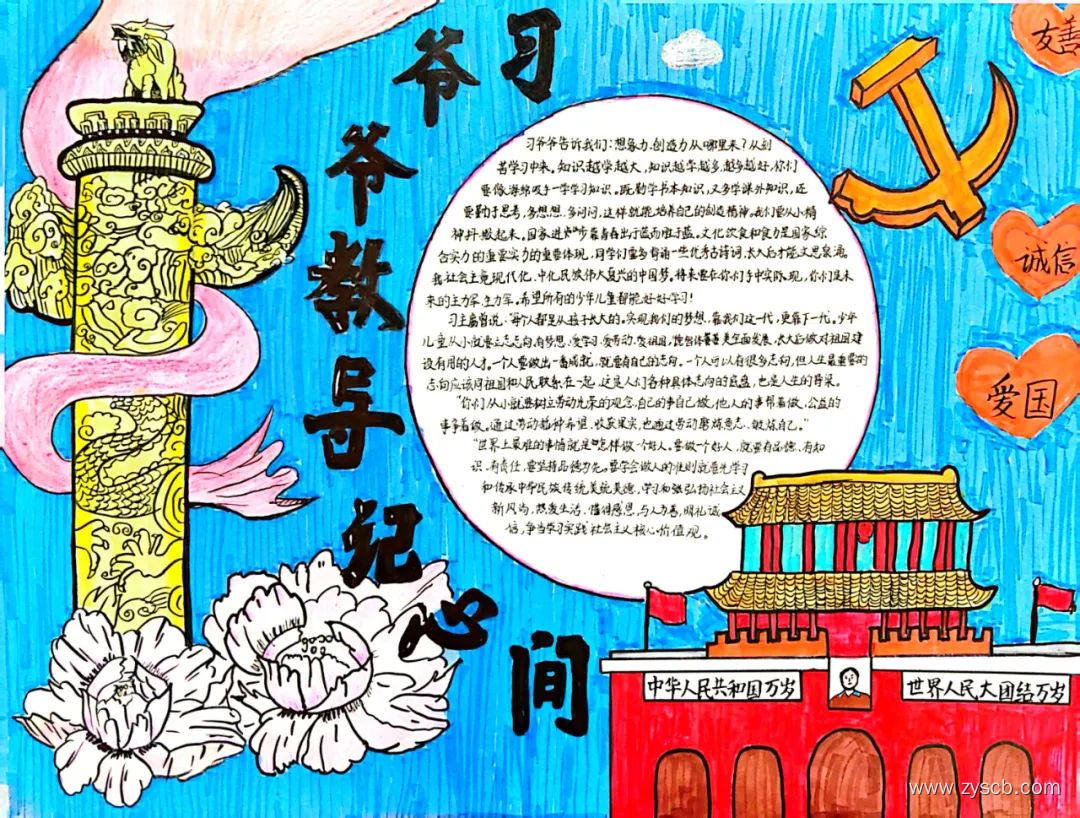 习爷爷教导记心间
习爷爷告诉我们：想象力、创造力从哪里来？从刻
苦学习中来。知识越学越大，知识越学越多，越多越好，你们
要像海绵吸水一学学习知识。既勤学书本知识，又多学课外知识，还
要勤于思考，多想想，多问问，这样就能培养自己的创造精神。我们要从小精
神抖擞起来。国家进步靠青出于蓝而胜于蓝。文化
合实力的重要实力的重要体现，同学们要多背诵一些优秀古诗词，长大后才能文思泉涌。
我社会主义现代化，中华民族伟大复兴的中国梦，将来要在你们手中实际现，你们是未
来的主力军、生力军。希望所有的少年儿童都能好好学习！
习主席曾说：“每个人都是从孩子长大的。实现我们的梦想，靠我们这一代，更靠下一代。少年
儿童从小就要立志志向、有梦想，爱学习、爱劳动、爱祖国，德智体美全面发展，长大后做对祖国建
设有用的人才。一个人要做出一番成就，就要有自己的志向。一个人可以有很多志向，但人生最重要的
志向应该同祖国和人民联系在一起，这是人们各种具体志向的底盘，也是人生的脊梁。
“你们从小就要树立劳动光荣的观念，自己的事自己做，他人的事帮着做，公益的
事争着做。通过劳动播种希望、收获果实，也通过劳动磨炼意志、锻炼自己。”
“世界上最难的事情就是怎样做个好人。要做一个好人，就要有品德、有知
识、有责任，要坚持品德为先。要学会做人的准则，就要先学习
和传承中华民族传统美德，学习和弘扬社会主义
新风尚，热爱生活，懂得感恩，与人为善，明礼诚
信，争当学习实践社会主义核心价值观。
友善
诚信
爱国
中华人民共和国万岁
世界人民大团结万岁
www.zyscb.com